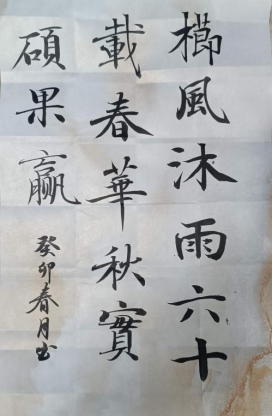 櫛風沐雨六十
載春華秋實
碩果贏
癸卯春月書